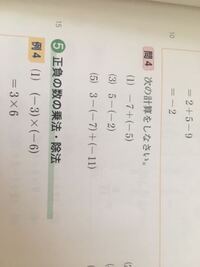 = 2 + 5 − 9
= −2
10
問4 次の計算をしなさい。
(1) −7+(−5)
(3) 5−(−2)
(5) 3−(−7)+(−11)
15
5 正負の数の乗法・除法
例4 (1) (−3)×(−6)
=3×6